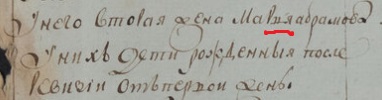 У него вторая жена Марья абрамова
У нихъ дети рожденныя после
ревизіи отъ первой жены